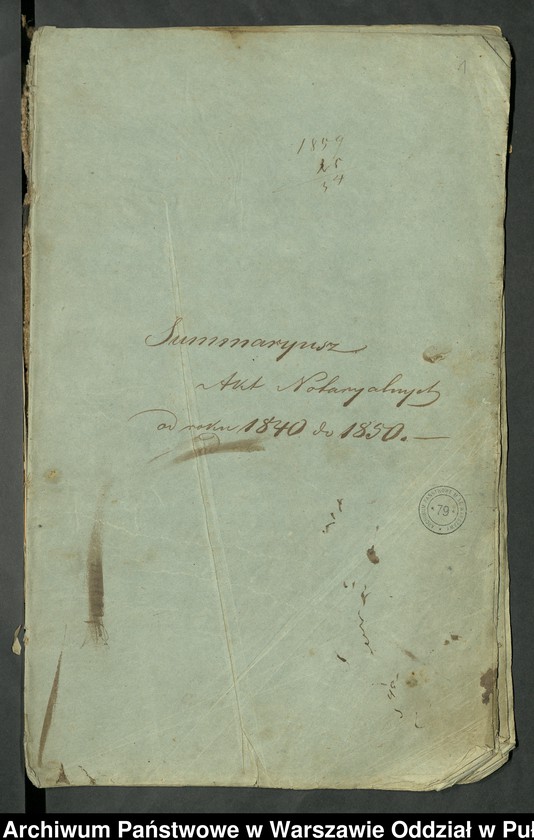 1
1859
25
34
Summaryusz
Akt Notaryalnych
od roku 1840 do 1850. —
79
Archiwum Państwowe w Warszawie Oddział w Puł